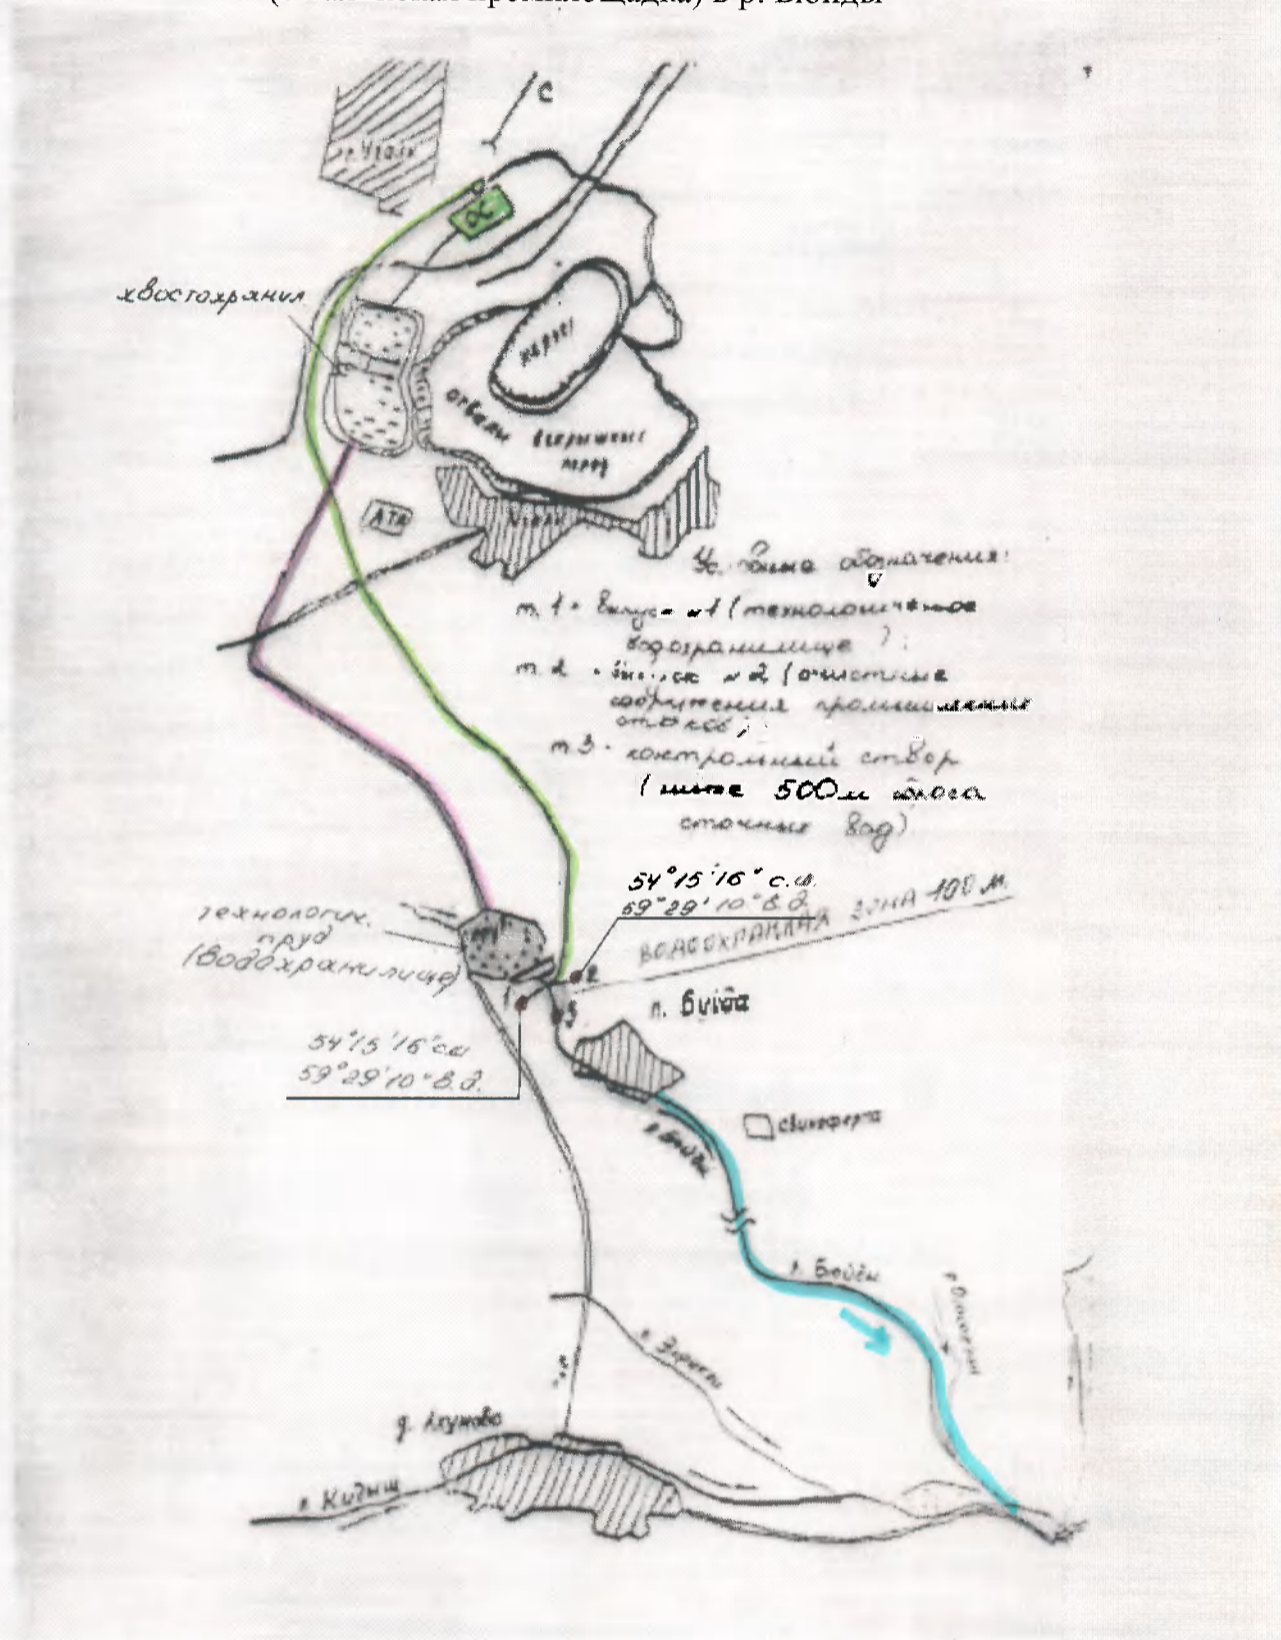 в р. Бюйды
С
ОС
хвостохранил.
карьер
отвалы
вскрышных
пород
АТП
обозначения:
т. 1 - выпуск №1 (технологическое
водохранилище);
т. 2 - выпуск №2 (очистные
сооружения промышленных
стоков;
т 3 - контрольный створ
(ниже 500м сброса
сточных вод)
54°15'16" с.ш.
59°29'10" в.д.
ВОДООХРАННАЯ ЗОНА 100 м.
технологич.
пруд
(водохранилище)
2
1
3
п. Буйда
54°15'16" с.ш
59°29'10" в.д.
свиноферма
р. Бюйды
р. Бюйды
д. Ахуново
р. Кидыш